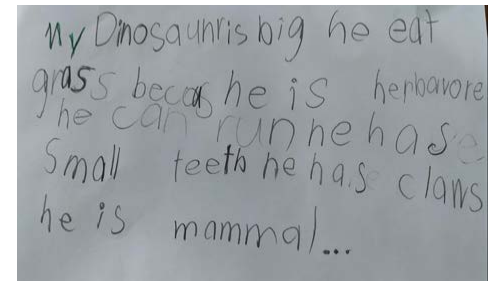 My Dinosaunris big he eat
grass becas he is herbavore
he can run he hase
Small teeth he hase claws
he is mammal...